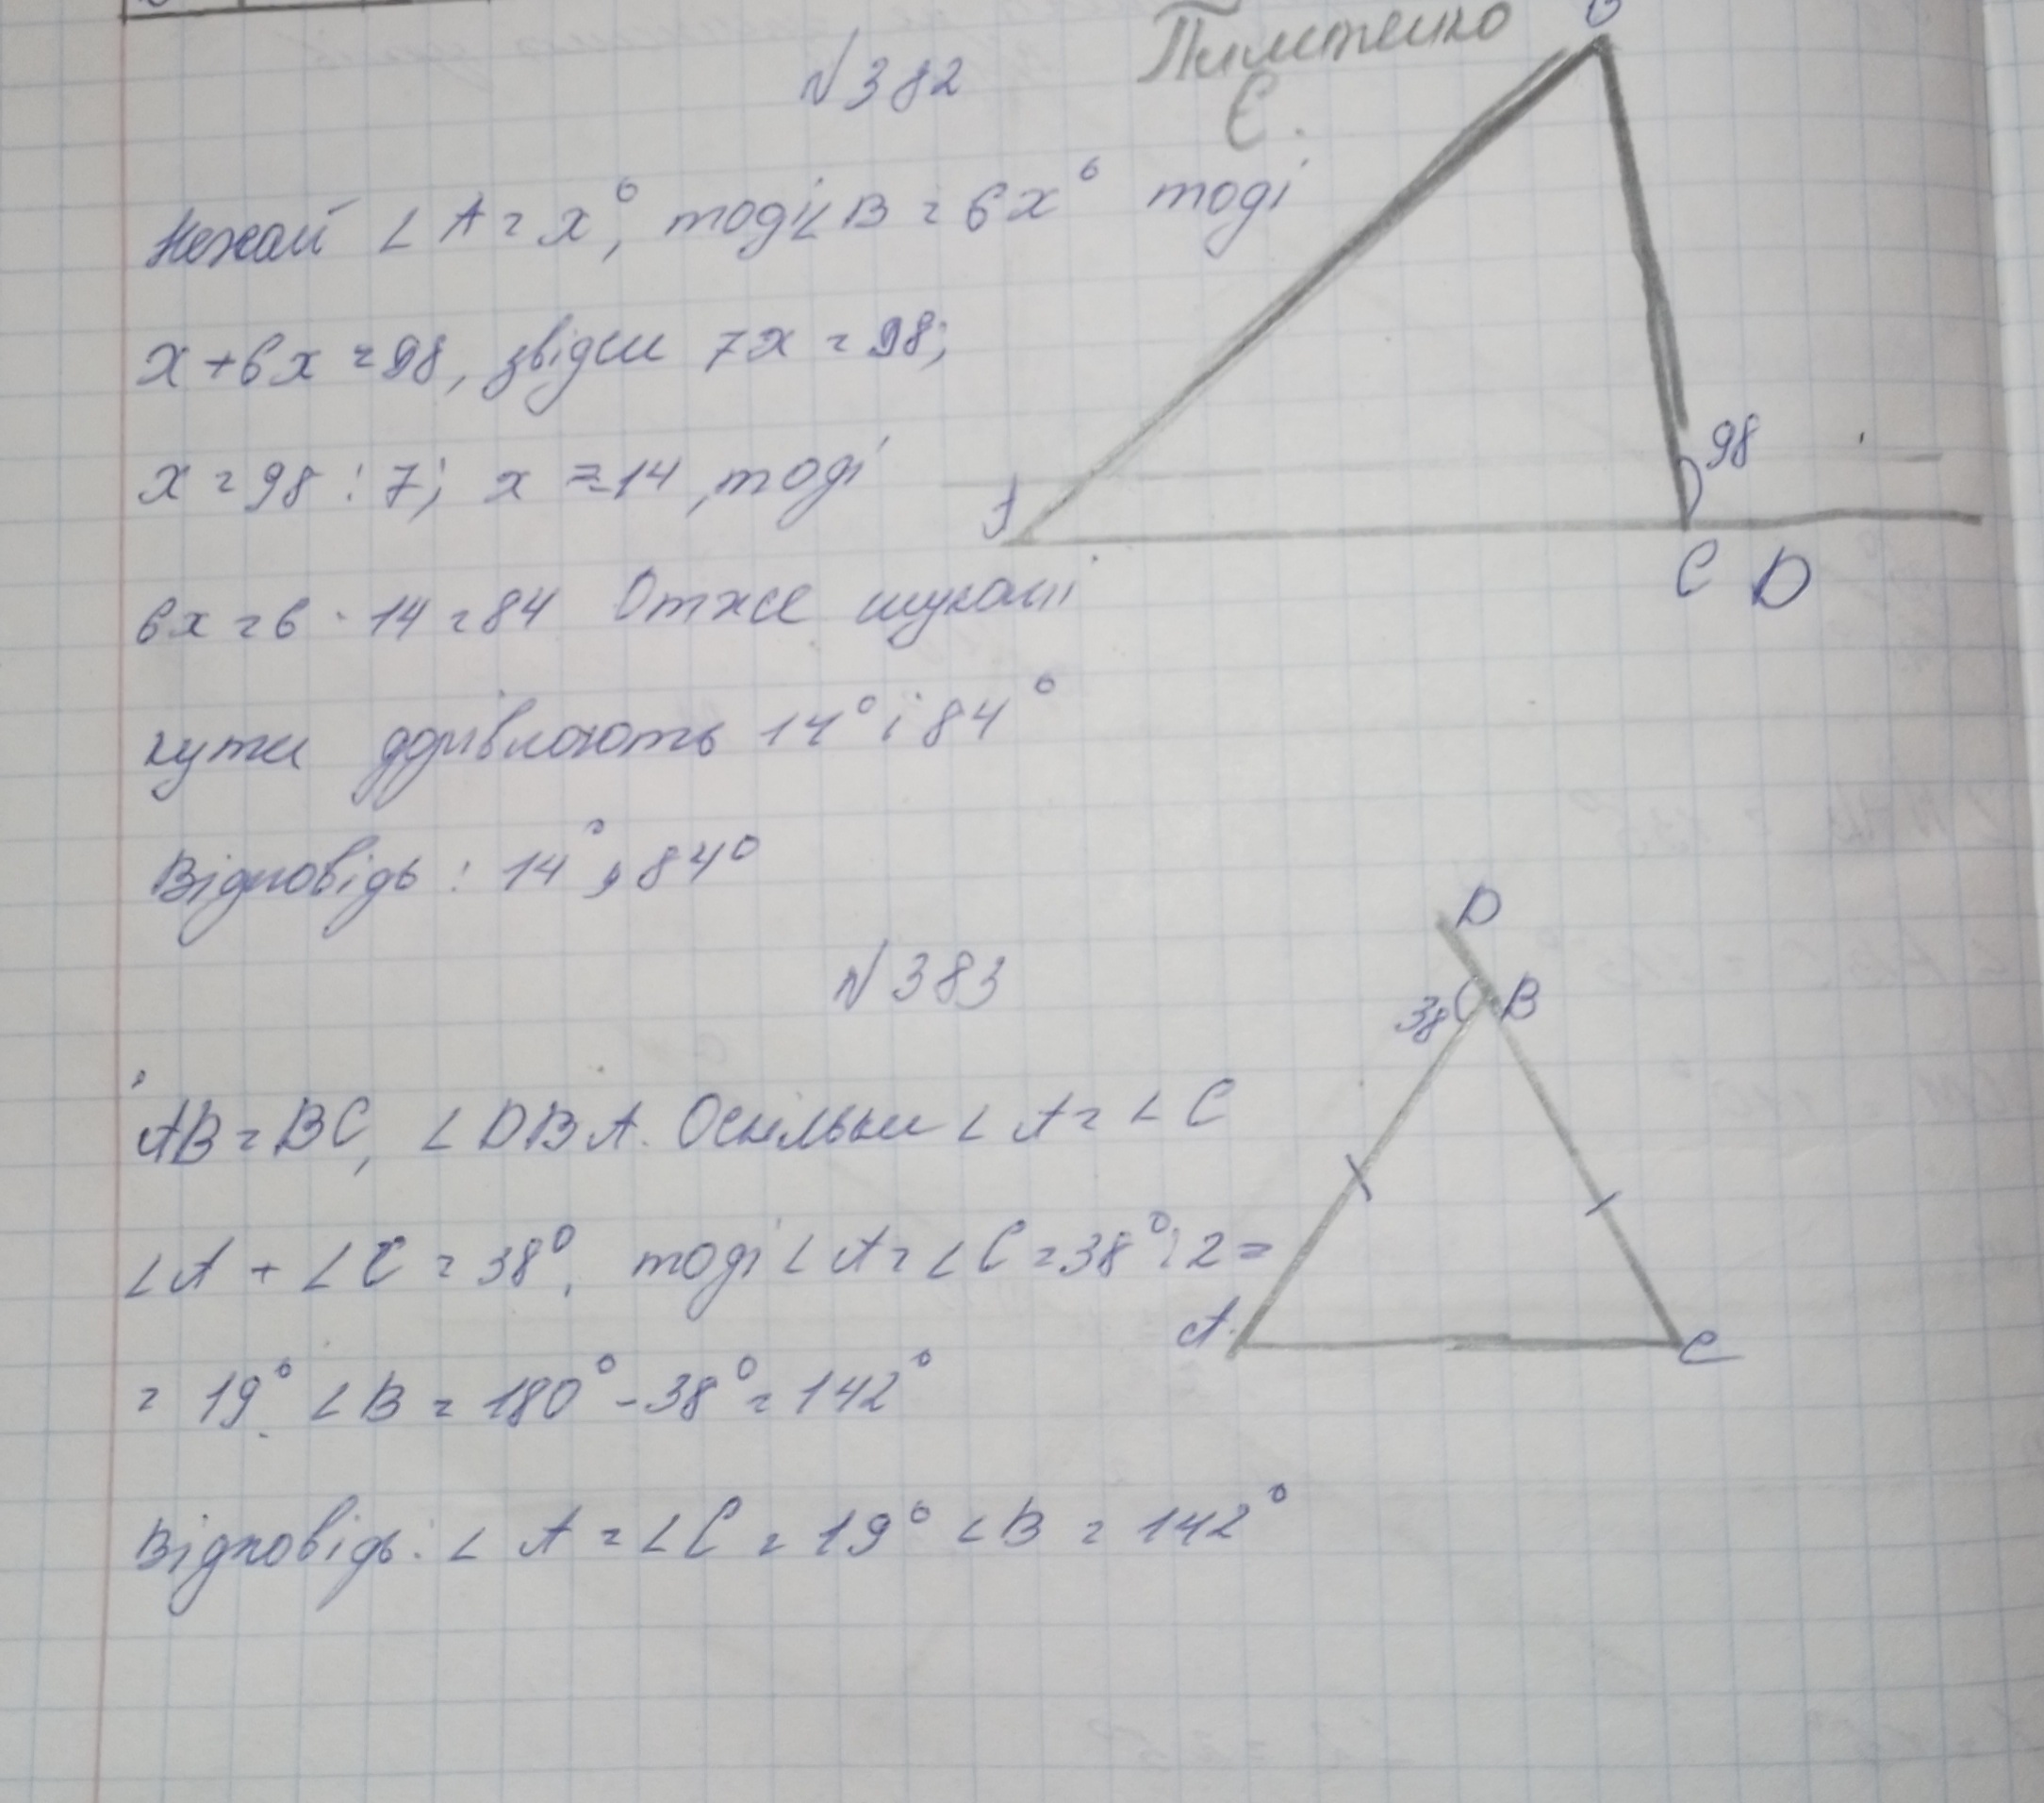 №382
Є.
Нехай ∠A = x°, тоді ∠B = 6x° тоді
x + 6x = 98, звідси 7x = 98;
x = 98 : 7; x = 14, тоді
6x = 6 · 14 = 84 Отже шукані
кути дорівлюють 14° і 84°
Відповідь: 14°, 84°
98
A
C D
№383
D
38 B
AB = BC, ∠DBA. Оскільки ∠A = ∠C
∠A + ∠C = 38°, тоді ∠A = ∠C = 38° : 2 =
= 19°. ∠B = 180° - 38° = 142°
A C
Відповідь: ∠A = ∠C = 19° ∠B = 142°